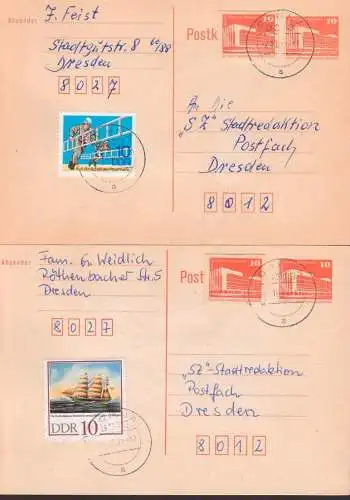 Absender:
J. Feist
Stadtgutstr. 8
Dresden
8027
Postk
10
10
An die
"SZ" Stadtredaktion
Postfach
Dresden
8012
10
Absender:
Fam. Weidlich
Röthenbacher Str. 5
Dresden
8027
Post
10
10
"SZ"-Stadtredaktion
Postfach
Dresden
8012
DDR 10